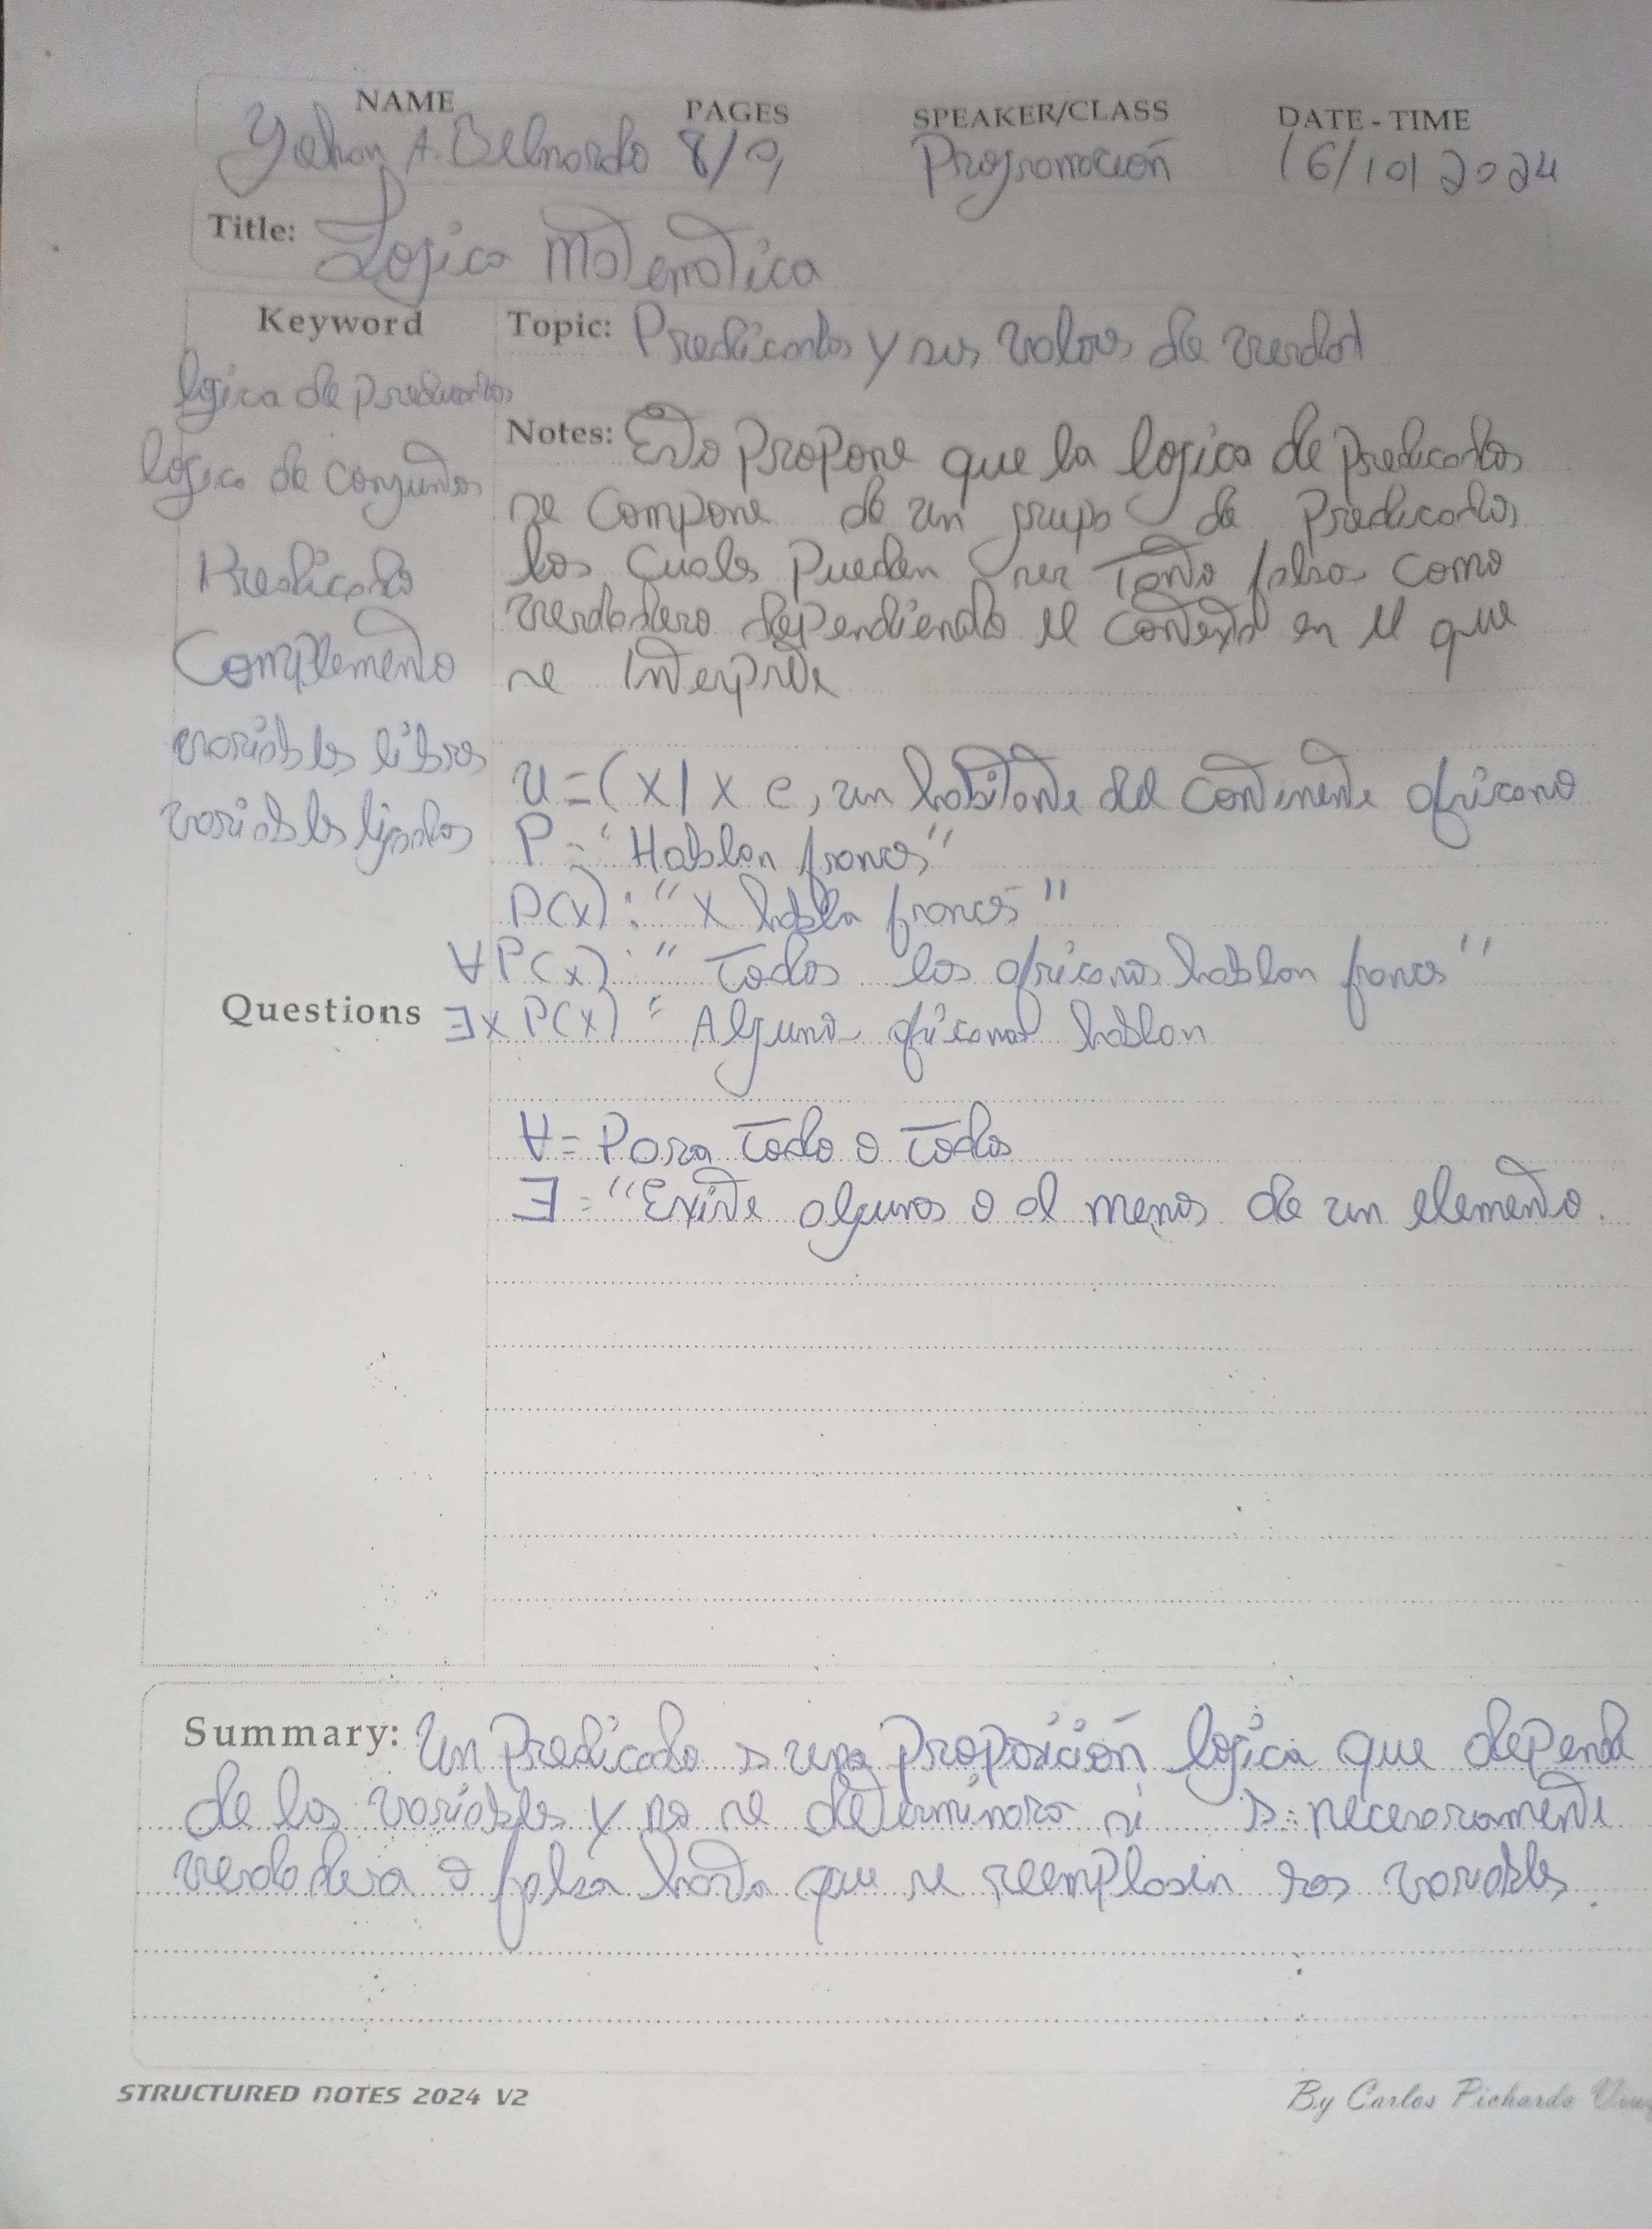 NAME PAGES SPEAKER/CLASS DATE - TIME
Yohon A. Belnardo 8/9 Programación 16/10/2024
Title: Logica Matematica
Keyword
logica de predicados
logica de conjuntos
Predicado
Complemento
variables libres
variables ligadas
Topic: Predicados y sus valores de verdad
Notes: Esto propone que la logica de predicados
se compone de un grupo de predicados
los cuales pueden ser tanto falsos como
verdadero dependiendo el contexto en el que
se interprete
U = (x/x e, un habitante del continente africano
P = "Hablan frances"
P(x): "x habla francés"
∀P(x): "Todos los africanos hablan frances"
Questions
∃x P(x) = Alguno africano hablan
∀ = Para todo o todos
∃ = "Existe algunos o al menos de un elemento.
Summary: Un predicado es una proposición logica que depende
de las variables y no se determinara si es necesariamente
verdadera o falsa hasta que se reemplasen sas variables.
STRUCTURED NOTES 2024 V2
By Carlos Pichardo